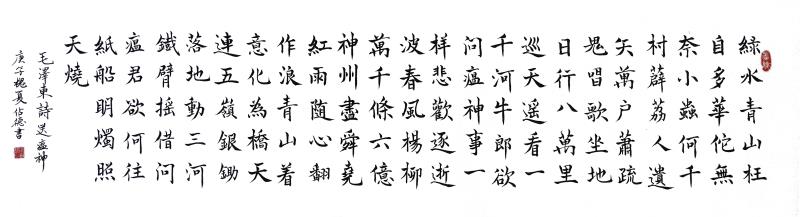 綠水青山枉
自多華佗無
奈小蟲何千
村薜荔人遺
矢萬戶蕭疏
鬼唱歌坐地
日行八萬里
巡天遙看一
千河牛郎欲
問瘟神事一
樣悲歡逐逝
波春風楊柳
萬千條六億
神州盡舜堯
紅雨隨心翻
作浪青山着
意化為橋天
連五嶺銀鋤
落地動三河
鐵臂搖借問
瘟君欲何往
紙船明燭照
天燒
毛澤東詩送瘟神
庚子槐夏德書